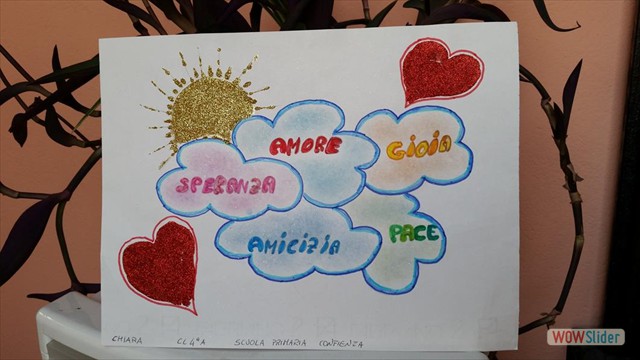 AMORE
GIOIA
SPERANZA
AMICIZIA
PACE
CHIARA CL 4°A SCUOLA PRIMARIA CONFIENZA
WOWSlider